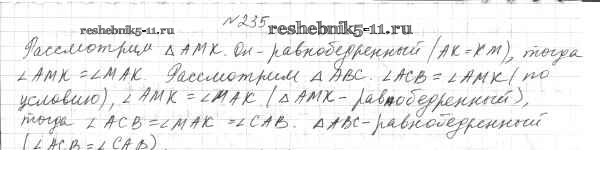 №235
reshebnik5-11.ru
reshebnik5-11.ru
Рассмотрим △ AMK. Он - равнобедренный (AK=KM), тогда
∠AMK = ∠MAK. Рассмотрим △ ABC. ∠ACB = ∠AMK (по
условию), ∠AMK = ∠MAK (△ AMK - равнобедренный),
тогда ∠ACB = ∠MAK = ∠CAB. △ABC - равнобедренный
(∠ACB = ∠CAB)